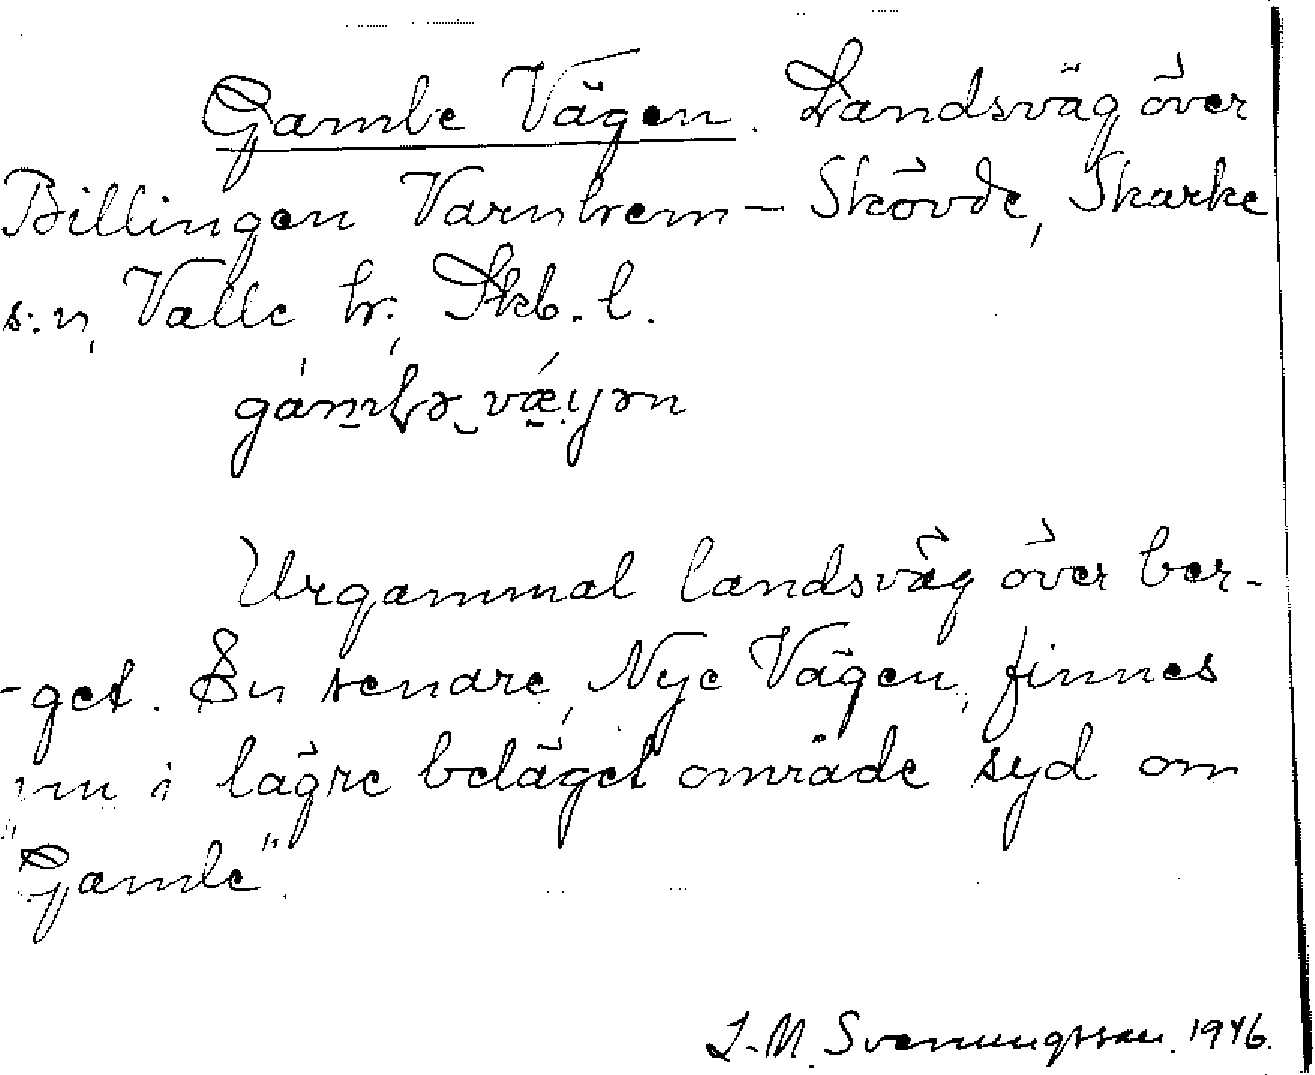 Gamle Vägen. Landsväg över
Billingen Varnhem - Skövde, Skarke
s:n, Valle hr., Skb. l.
gámlə vǽyən
Urgammal landsväg över ber-
-get. En senare, Nye Vägen, finnes
nu i lägre beläget område syd om
"Gamle".
J-M. Svenungsson. 1946.